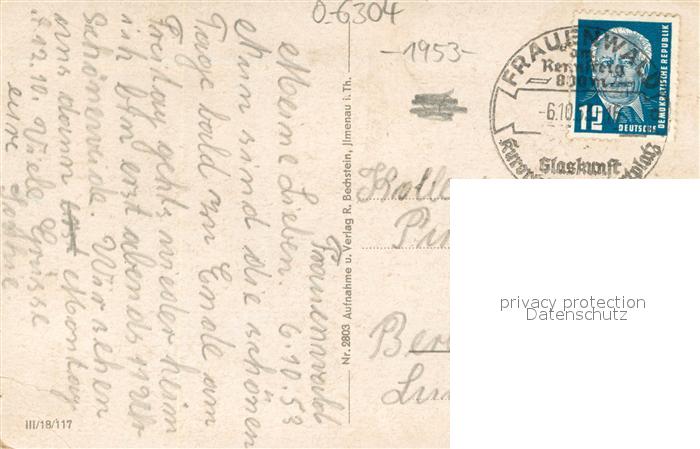 0-6304
-1953-
FRAUENWALD
am
Rennsteig
800 m
-6.10.
Glaskunst
12
DEUTSCHE
DEMOKRATISCHE REPUBLIK
Frauenwald
6.10.53
Meine Lieben.
Nun sind die schönen
Tage bald zu Ende am
Freitag gehts wieder heim
ich bin erst abends in
Schönerwinde. Wir sehen
uns dann Montag
d 12.10. Viele Grüsse
eure
Nr. 2803 Aufnahme u. Verlag R. Bechstein, Jlmenau i. Th.
III/18/117
privacy protection
Datenschutz